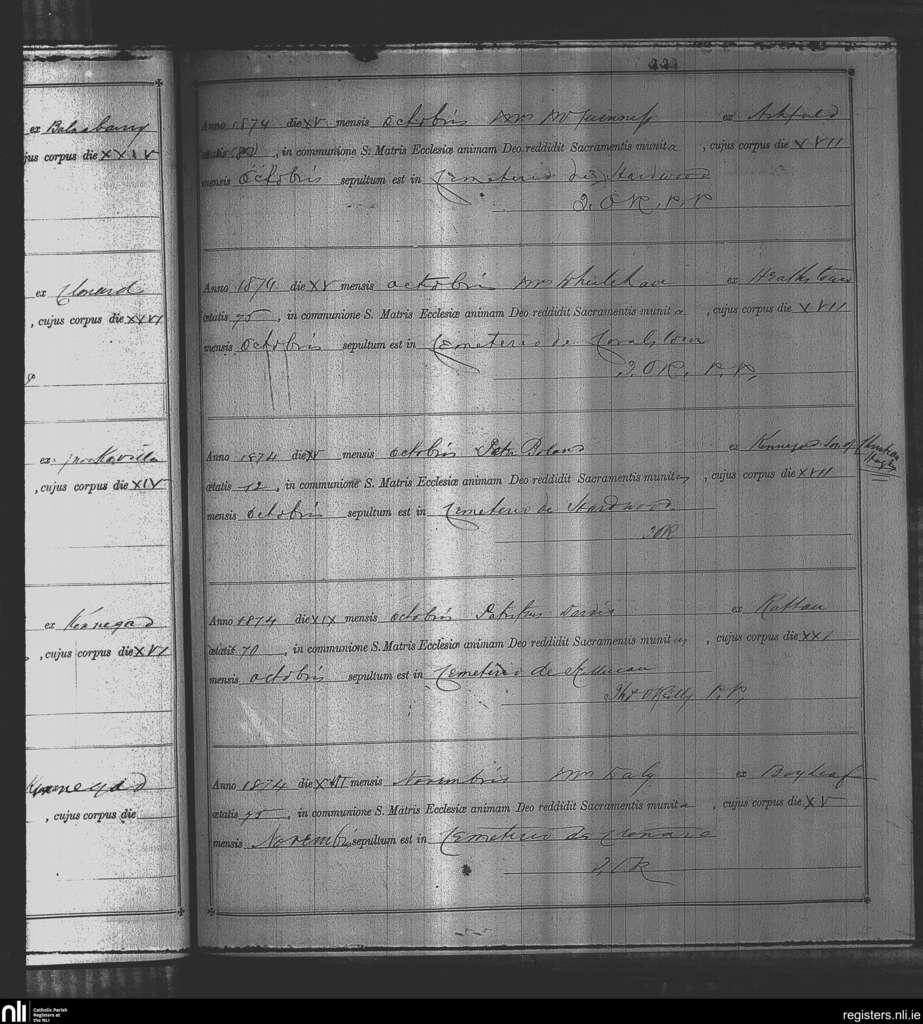 ex Balnabarny
jus corpus die XXIV
ex Clonard
, cujus corpus die XXVI
ex
, cujus corpus die XIV
ex Kinnegad
, cujus corpus die XVI
Kinnegad
, cujus corpus die
222
Anno 1874 die XV mensis Octobris Mrs ex Ashfield
ætatis , in communione S. Matris Ecclesiæ animam Deo reddidit Sacramentis munita , cujus corpus die XVII
mensis Octobris sepultum est in Cemeterio de Hardwood
J. O K. P. P.
Anno 1874 die XV mensis Octobris Mrs Whelehan ex Heathstown
ætatis 75 , in communione S. Matris Ecclesiæ animam Deo reddidit Sacramentis munita , cujus corpus die XVII
mensis Octobris sepultum est in Cemeterio de Coralstown
J. O K. P. P.
Anno 1874 die XV mensis Octobris ex Kinnegad son of Christian
ætatis 12 , in communione S. Matris Ecclesiæ animam Deo reddidit Sacramentis munitus , cujus corpus die XVII
mensis Octobris sepultum est in Cemeterio de Hardwood
J O K
Anno 1874 die XIX mensis Octobris Patritius ex Rattan
ætatis 70 , in communione S. Matris Ecclesiæ animam Deo reddidit Sacramentis munitus , cujus corpus die XXI
mensis Octobris sepultum est in Cemeterio de Killucan
Ths O Kelly P. P.
Anno 1874 die XIII mensis Novembris Mrs Daly ex
ætatis 75 , in communione S. Matris Ecclesiæ animam Deo reddidit Sacramentis munita , cujus corpus die XV
mensis Novembris sepultum est in Cemeterio de Clonard
J O K
nli Catholic Parish
Registers at
the NLI
registers.nli.ie